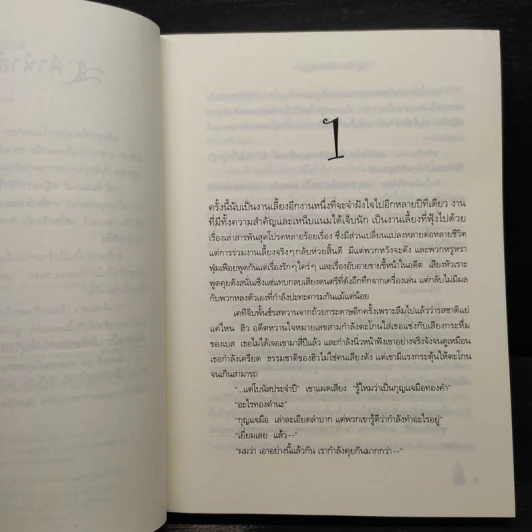 1
ครั้งนี้นับเป็นงานเลี้ยงอีกงานหนึ่งที่จะจำฝังใจไปอีกหลายปีทีเดียว งาน
ที่มีทั้งความสำคัญและเหน็บแนมได้เจ็บนัก เป็นงานเลี้ยงที่ฟุ้งไปด้วย
เรื่องเล่าสารพันสุดโปรดหลายร้อยเรื่อง ซึ่งมีส่วนเปลี่ยนแปลงหลายต่อหลายชีวิต
แต่การร่วมงานเลี้ยงจริงๆกลับห่วยสิ้นดี มีแต่พวกหวังจะดัง และพวกหรูหรา
ฟุ่มเฟือยพูดกันแต่เรื่องรักๆใคร่ๆ และเรื่องอับอายขายขี้หน้าในอดีต เสียงหัวเราะ
พูดคุยดังนั่นเซ็งแซ่แทบกลบเสียงดนตรีที่ดังอีกทึกจากเครื่องเล่น แต่กลับไม่มีผล
กับพวกหลงตัวเองที่กำลังปะทะคารมกันแม้แต่น้อย
เคทีจิบพั้นช์รสหวานจากถ้วยกระดาษอีกครั้งเพราะลืมไปแล้วว่ารสชาติแย่
แค่ไหน ฮิว อดีตหวานใจหมายเลขสามกำลังตะโกนใส่เธอแข่งกับเสียงกระหึ่ม
ของเบส เธอไม่ได้เจอเขามาสี่ปีแล้ว และกำลังนิ่วหน้าฟังเขาอย่างจริงจังจนดูเหมือน
เธอกำลังเครียด ธรรมชาติของฮิวไม่ใช่คนเสียงดัง แต่เขามีแรงกระตุ้นให้ตะโกน
จนเกินสามารถ
"...แต่โบนัสประจำปี" เขาแผดเสียง "รู้ไหมว่าเป็นกุญแจมือทองคำ"
"อะไรทองคำนะ"
"กุญแจมือ เล่าละเอียดลำบาก แต่พวกเขารู้ดีว่ากำลังทำอะไรอยู่"
"เยี่ยมเลย แล้ว--"
"ผมว่า เอาอย่างนี้แล้วกัน เรากำลังคุยกันมากกว่า--"